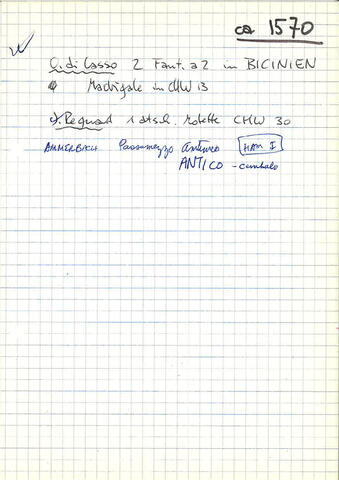 ca 1570
O. di Lasso 2 Fant. a 2 in BICINIEN
Madrigale in CHW 13
J. Regnart 1 dtsch. Motette CHW 30
AMMERBACH Passamezzo antico HAM I
ANTICO - cembalo